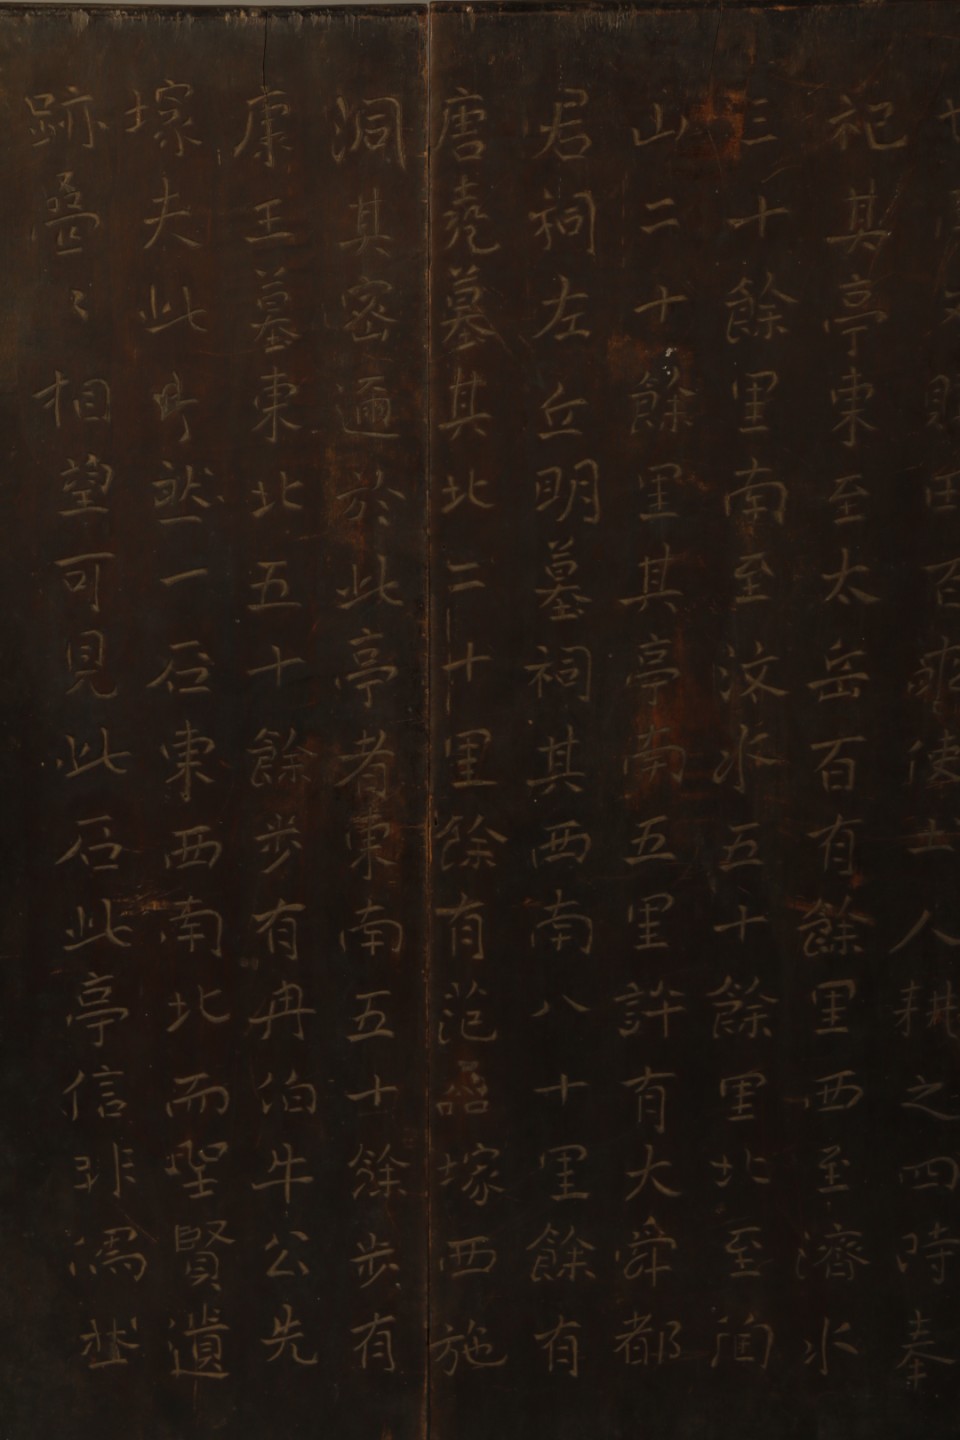 賜田百使士人耕之四時奉
祀其亭東至太岳百有餘里西至濟水
三十餘里南至汶水五十餘里北至陶
山二十餘里其亭南五里許有大舜都
君祠左丘明墓祠其西南八十里餘有
唐堯墓其北二十里餘有范蠡塚西施
洞其密邇於此亭者東南五十餘步有
康王墓東北五十餘步有冉伯牛公先
塚夫此片然一石東西南北而聖賢遺
跡疊々相望可見此石此亭信非